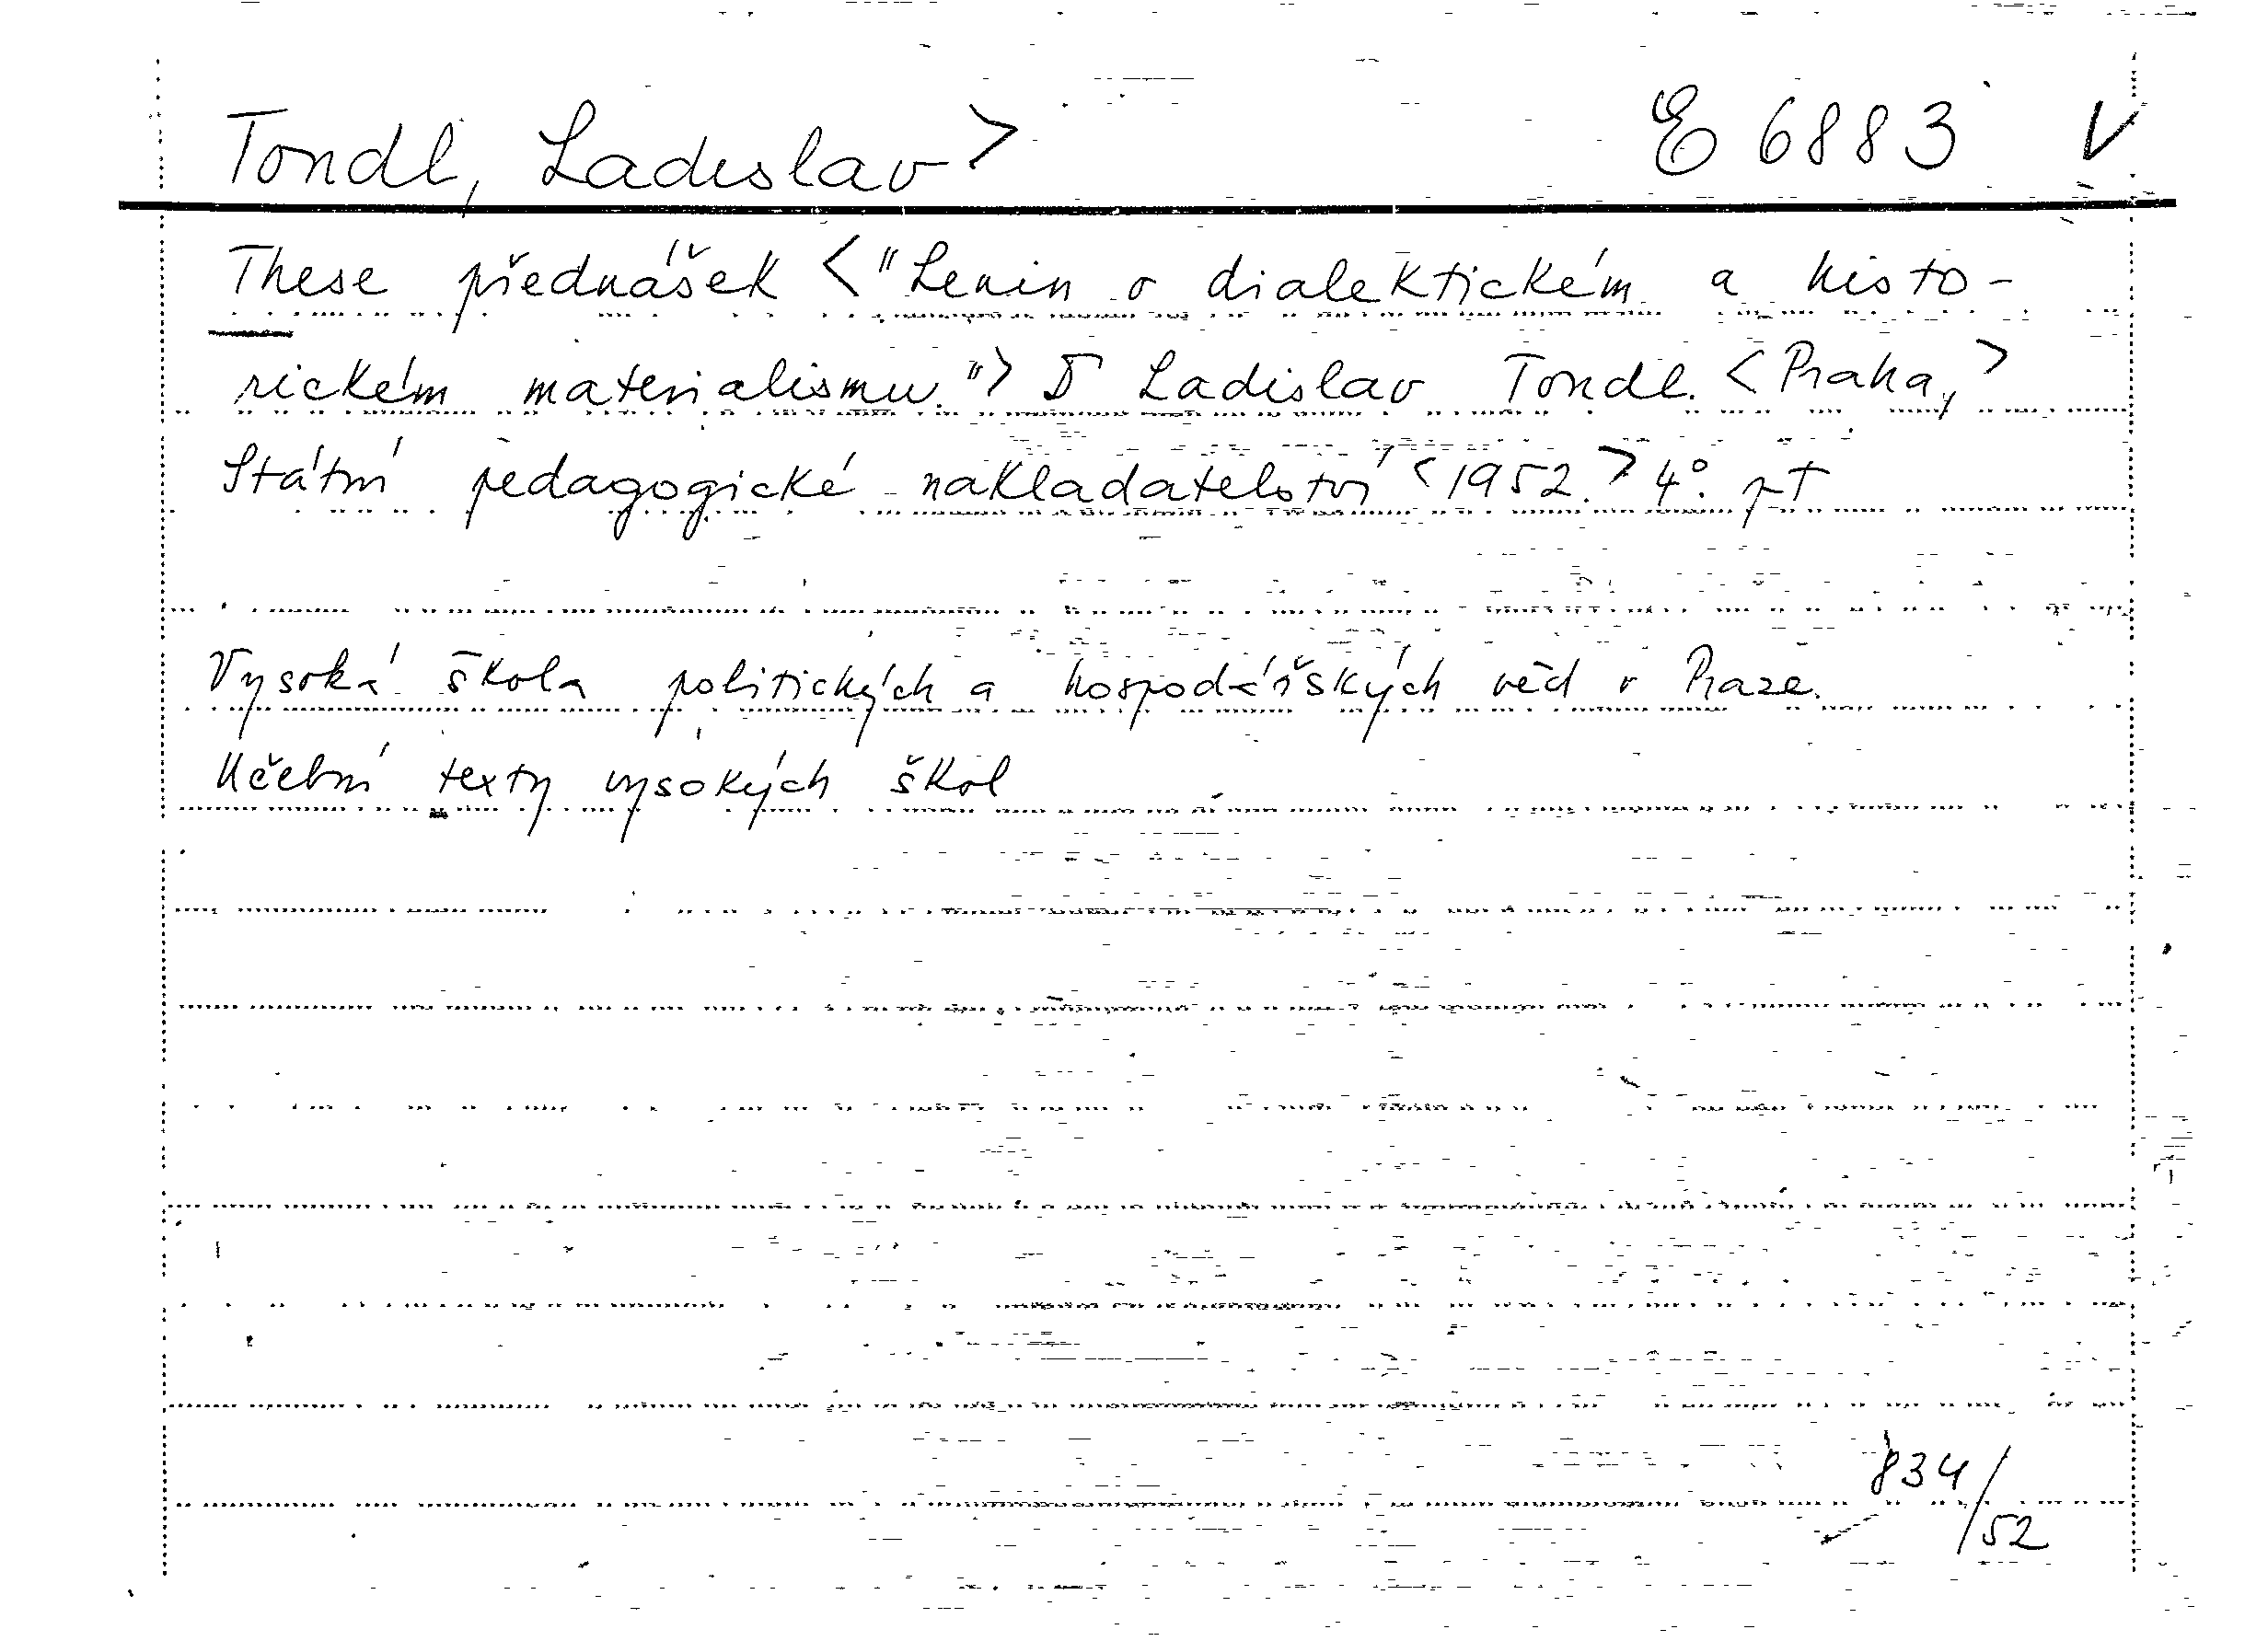 Tondl, Ladislav > E 6883 V
These přednášek < "Lenin o dialektickém a histo-
rickém materialismu." > Ladislav Tondl. < Praha, >
Státní pedagogické nakladatelství < 1952. > 4°.
Vysoká škola politických a hospodářských věd v Praze.
Učební texty vysokých škol
834/52